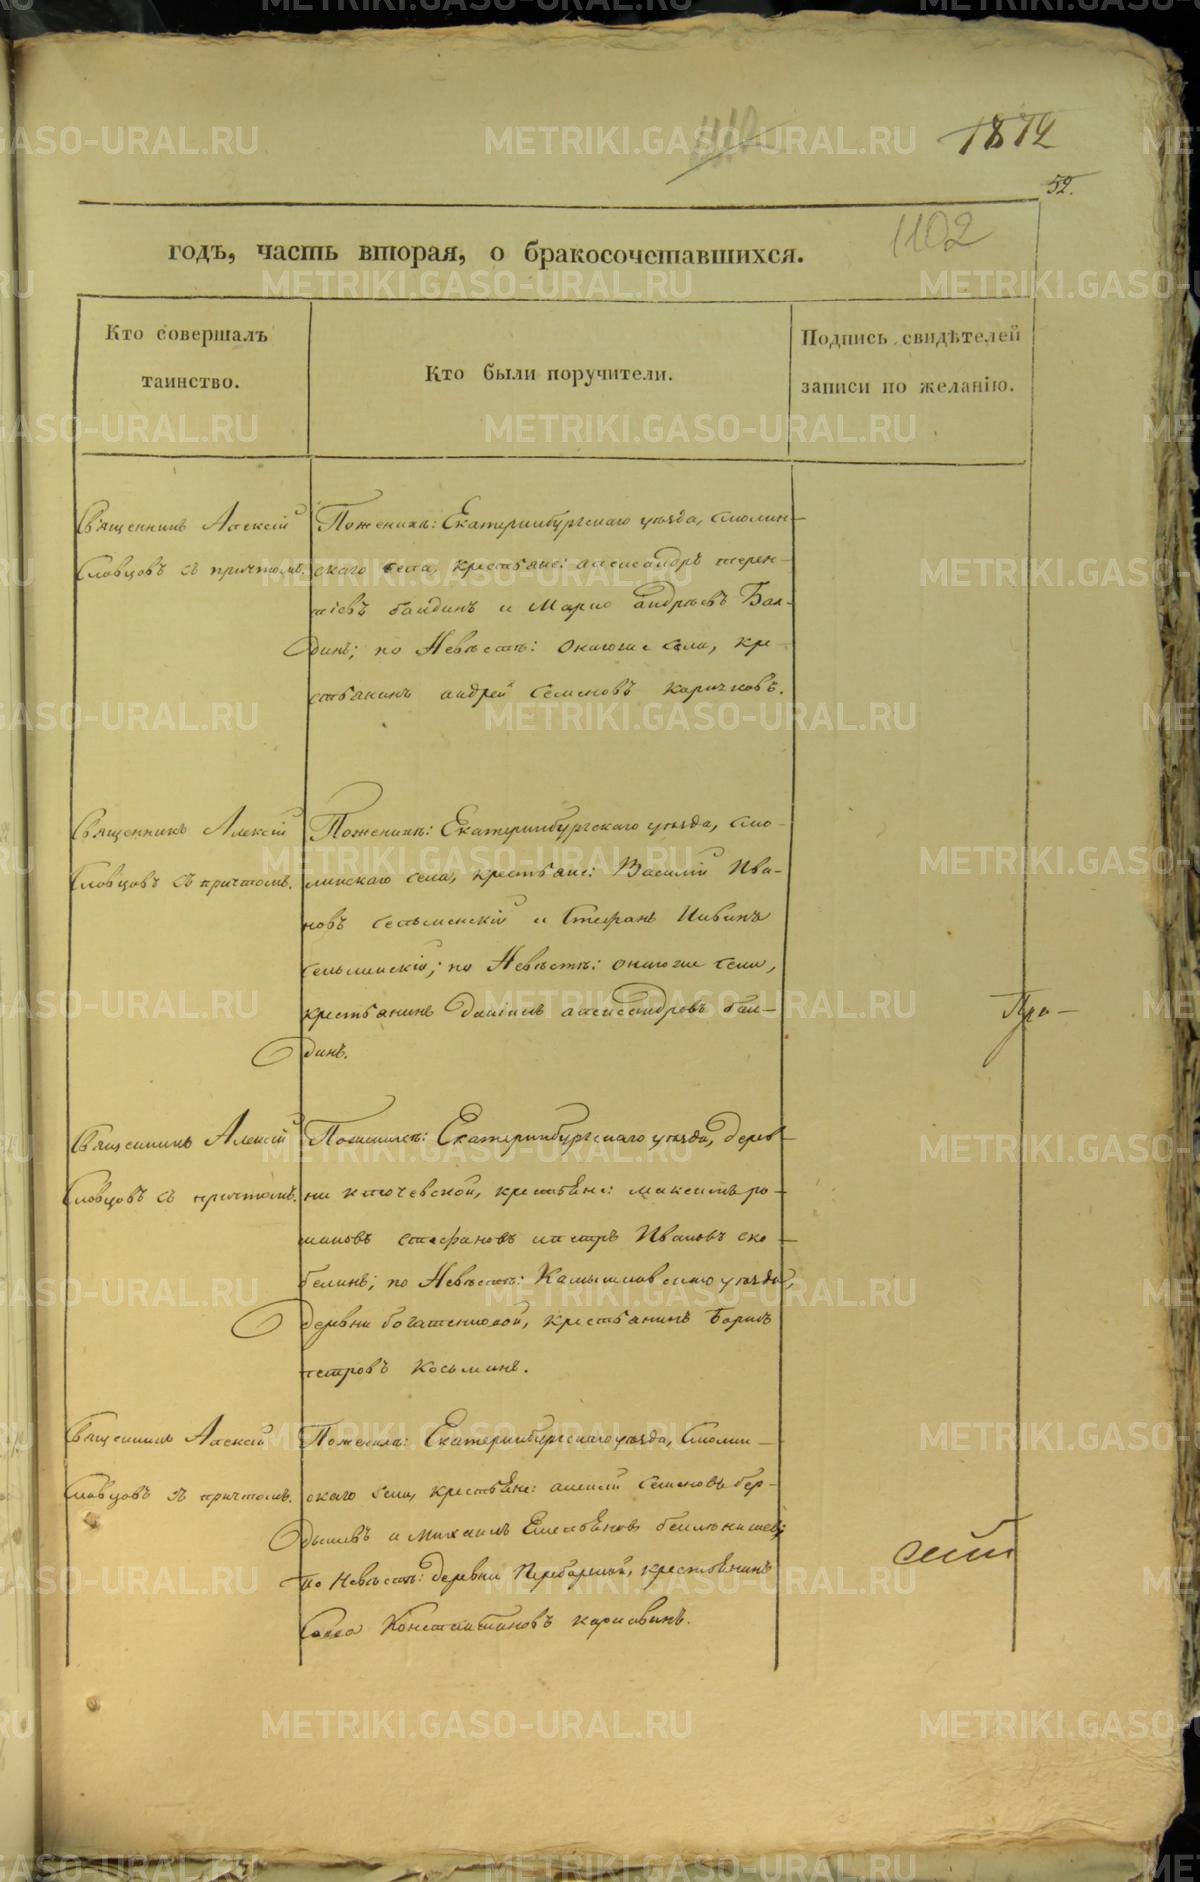 1872
52.
1102
годъ, часть вторая, о бракосочетавшихся.
Кто совершалъ
таинство.
Кто были поручители.
Подпись свидѣтелей
записи по желанію.
Священникъ Алексій
Словцовъ съ причтомъ.
По женихѣ: Екатеринбургскаго уѣзда, Смолин-
скаго села, крестьяне: Александръ Терен-
тіевъ Бандинъ и Марко Андреевъ Бан-
динъ; по Невѣстѣ: онагоже села, кре-
стьянинъ Андрей Семеновъ Каричковъ.
Священникъ Алексій
Словцовъ съ причтомъ.
По женихѣ: Екатеринбургскаго уѣзда, Смо-
линскаго села, крестьяне: Василій Ива-
новъ и Стефанъ
по Невѣстѣ: онагоже села,
крестьянинъ Даніилъ Александровъ Бан-
динъ.
При-
Священникъ Алексій
Словцовъ съ причтомъ.
По женихѣ: Екатеринбургскаго уѣзда, дерев-
ни Ключевской, крестьяне: Максимъ Ро-
мановъ Стефановъ и Петръ Ивановъ Ско-
белинъ; по Невѣстѣ: Камышловскаго уѣзда,
деревни крестьянинъ Борисъ
Петровъ Косьминъ.
Священникъ Алексій
Словцовъ съ причтомъ.
По женихѣ: Екатеринбургскаго уѣзда, Смолин-
скаго села, крестьяне: Алексій Семеновъ Бер-
дышевъ и Михаилъ Емельяновъ
по Невѣстѣ: деревни Переборной, крестьянинъ
Савва Константиновъ